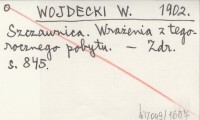 WOJDECKI W. 1902.
Szczawnica. Wrażenia z tego-
rocznego pobytu. — Zdr.
s. 845.